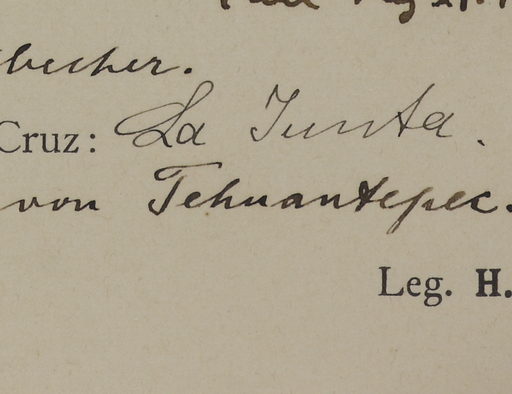 becher.
Cruz: La Junta.
von Tehuantepec.
Leg. H.